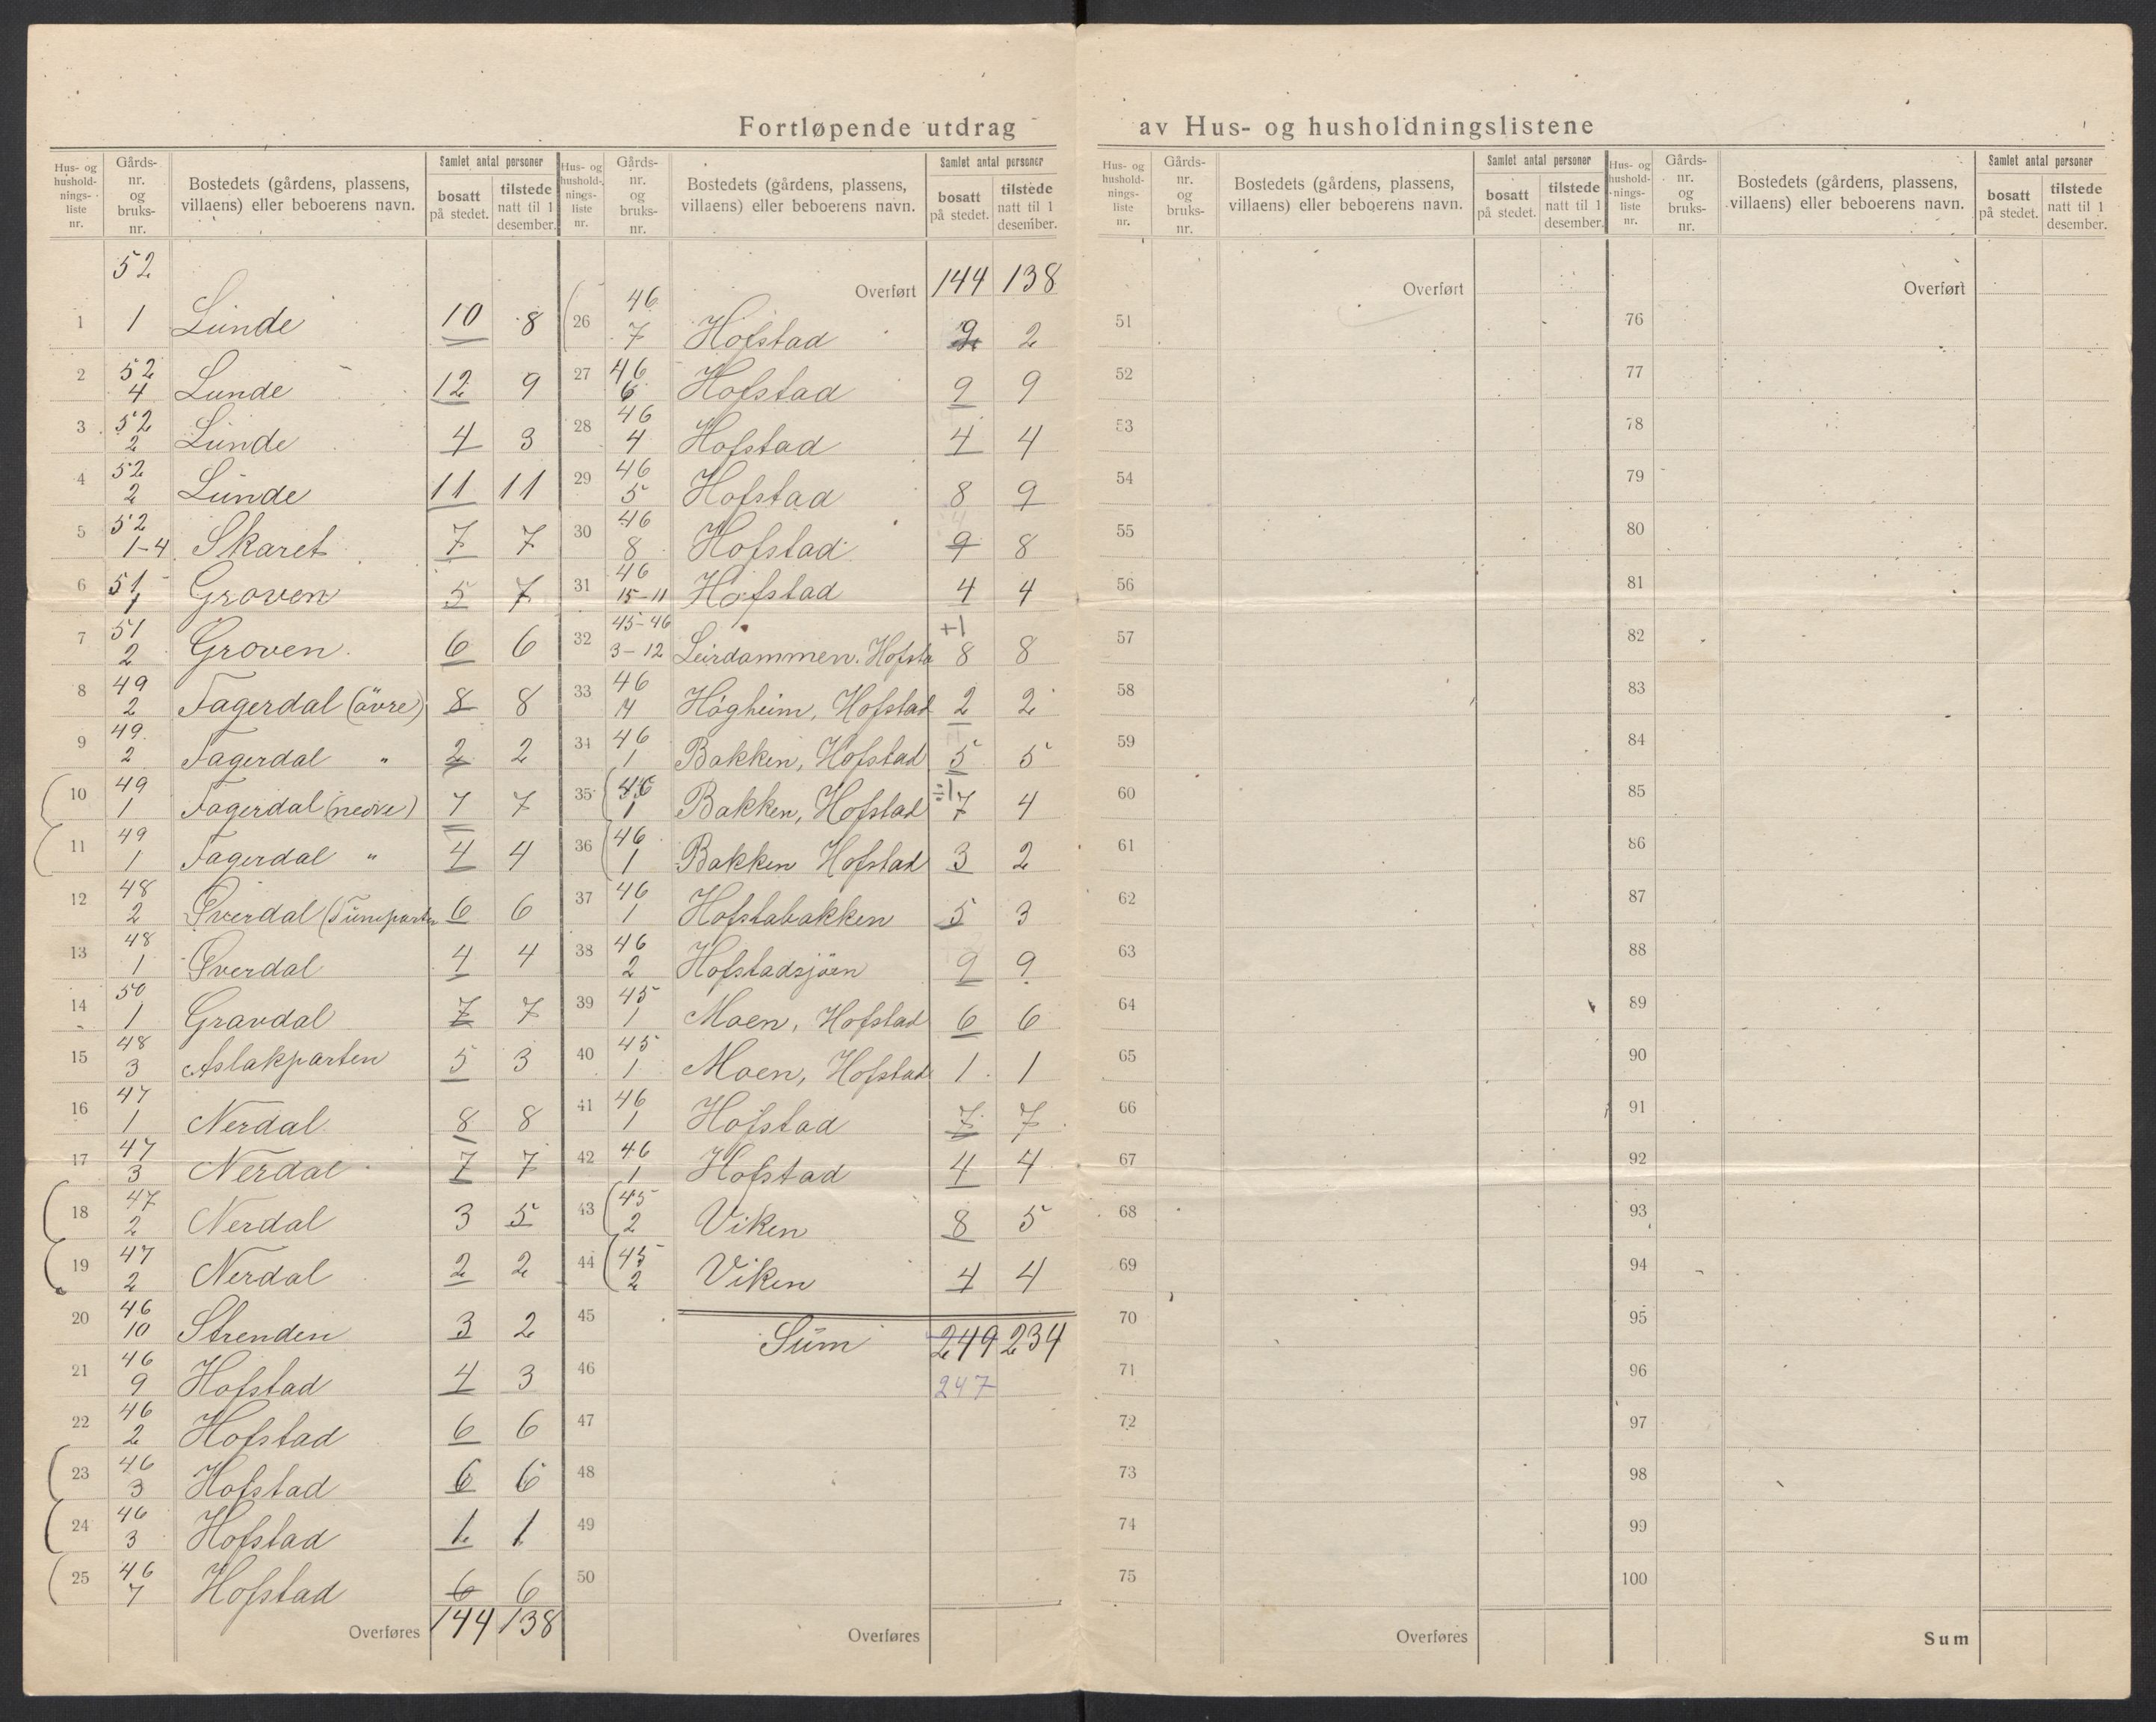 Fortløpende utdrag av Hus- og husholdningslistene
Hus- og hushold- nings- liste nr. | Gårds- nr. og bruks- nr. | Bostedets (gårdens, plassens, villaens) eller beboerens navn. | Samlet antal personer | bosatt på stedet. | tilstede natt til 1 desember.
1 | 52 1 | Lunde | 10 | 8
2 | 52 4 | Lunde | 12 | 9
3 | 52 2 | Lunde | 4 | 3
4 | 52 2 | Lunde | 11 | 11
5 | 52 1-4 | Skaret | 7 | 7
6 | 51 1 | Groven | 5 | 7
7 | 51 2 | Groven | 6 | 6
8 | 49 2 | Fagerdal (övre) | 8 | 8
9 | 49 2 | Fagerdal " | 2 | 2
10 | 49 1 | Fagerdal (nedre) | 7 | 7
11 | 49 1 | Fagerdal " | 4 | 4
12 | 48 2 | Överdal (Tuneparten | 6 | 6
13 | 48 1 | Överdal | 4 | 4
14 | 50 1 | Gravdal | 7 | 7
15 | 48 3 | Aslakparten | 5 | 3
16 | 47 1 | Nerdal | 8 | 8
17 | 47 3 | Nerdal | 7 | 7
18 | 47 2 | Nerdal | 3 | 5
19 | 47 2 | Nerdal | 2 | 2
20 | 46 10 | Strenden | 3 | 2
21 | 46 9 | Hofstad | 4 | 3
22 | 46 2 | Hofstad | 6 | 6
23 | 46 3 | Hofstad | 6 | 6
24 | 46 3 | Hofstad | 1 | 1
25 | 46 7 | Hofstad | 6 | 6
Overføres | 144 | 138
Hus- og hushold- nings- liste nr. | Gårds- nr. og bruks- nr. | Bostedets (gårdens, plassens, villaens) eller beboerens navn. | Samlet antal personer | bosatt på stedet. | tilstede natt til 1 desember.
Overført | 144 | 138
26 | 46 7 | Hofstad | 2 | 2
27 | 46 6 | Hofstad | 9 | 9
28 | 46 4 | Hofstad | 4 | 4
29 | 46 5 | Hofstad | 8 | 9
30 | 46 8 | Hofstad | 9 | 8
31 | 46 15-11 | Hofstad | 4 | 4
32 | 45-46 3-12 | Leirdammen. Hofsta | +1 8 | 8
33 | 46 4 | Högheim, Hofstad | 2 | 2
34 | 46 1 | Bakken, Hofstad | 5 | 5
35 | 46 1 | Bakken, Hofstad | ÷1 7 | 4
36 | 46 1 | Bakken Hofstad | 3 | 2
37 | 46 1 | Hofstabakken | 5 | 3
38 | 46 2 | Hofstadsjöen | 9 | 9
39 | 45 1 | Moen, Hofstad | 6 | 6
40 | 45 1 | Moen, Hofstad | 1 | 1
41 | 46 1 | Hofstad | 7 | 7
42 | 46 1 | Hofstad | 4 | 4
43 | 45 2 | Viken | 8 | 5
44 | 45 2 | Viken | 4 | 4
45 | Sum | 249 | 234
46 | 247
47
48
49
50
Overføres
Hus- og hushold- nings- liste nr. | Gårds- nr. og bruks- nr. | Bostedets (gårdens, plassens, villaens) eller beboerens navn. | Samlet antal personer | bosatt på stedet. | tilstede natt til 1 desember.
Overført
51
52
53
54
55
56
57
58
59
60
61
62
63
64
65
66
67
68
69
70
71
72
73
74
75
Overføres
Hus- og hushold- nings- liste nr. | Gårds- nr. og bruks- nr. | Bostedets (gårdens, plassens, villaens) eller beboerens navn. | Samlet antal personer | bosatt på stedet. | tilstede natt til 1 desember.
Overført
76
77
78
79
80
81
82
83
84
85
86
87
88
89
90
91
92
93
94
95
96
97
98
99
100
Sum